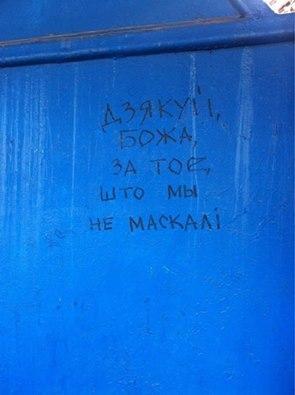 ДЗЯКУЙ,
БОЖА,
ЗА ТОЕ,
ШТО МЫ
НЕ МАСКАЛІ